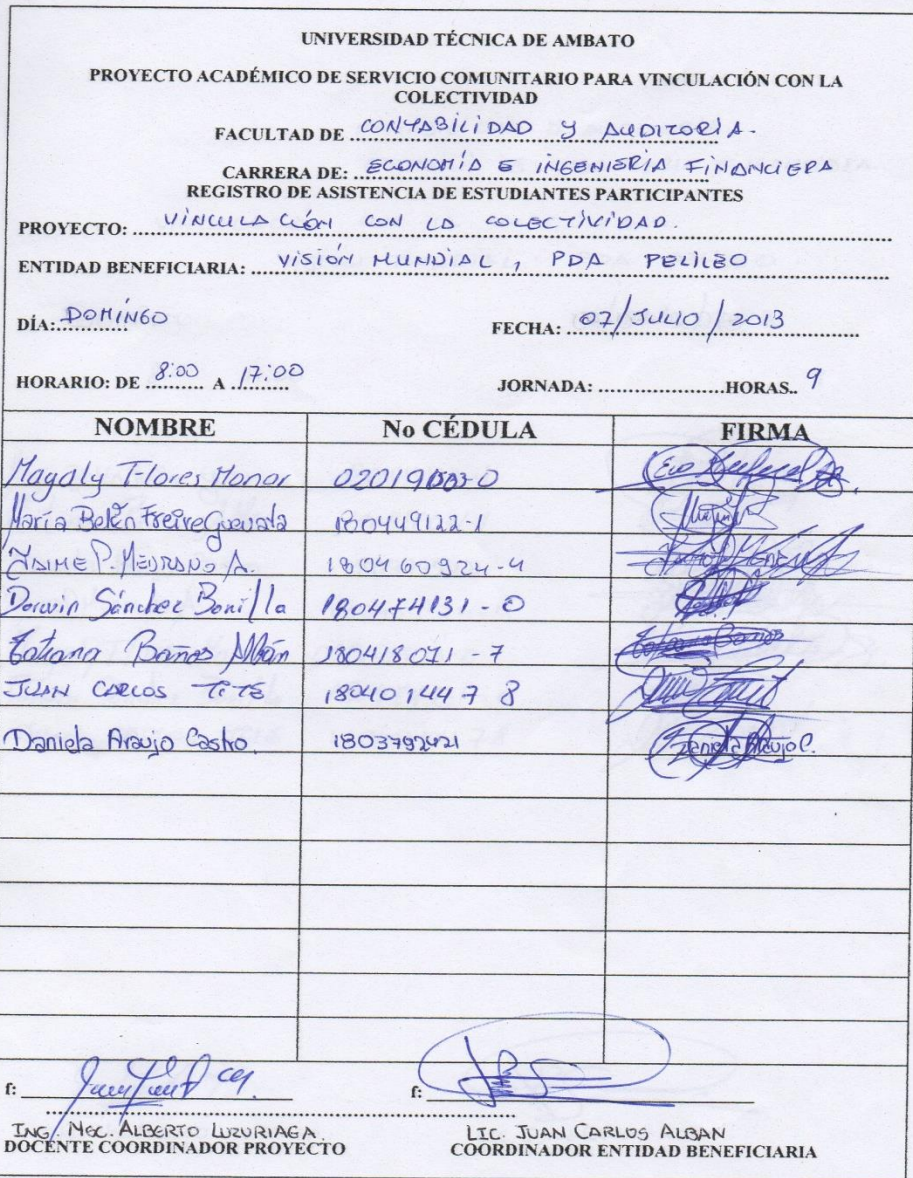 UNIVERSIDAD TÉCNICA DE AMBATO
PROYECTO ACADÉMICO DE SERVICIO COMUNITARIO PARA VINCULACIÓN CON LA
COLECTIVIDAD
FACULTAD DE CONTABILIDAD Y AUDITORÍA.
CARRERA DE: ECONOMÍA E INGENIERÍA FINANCIERA
REGISTRO DE ASISTENCIA DE ESTUDIANTES PARTICIPANTES
PROYECTO: VINCULACIÓN CON LA COLECTIVIDAD.
ENTIDAD BENEFICIARIA: VISIÓN MUNDIAL, PDA PELILEO
DÍA: DOMINGO FECHA: 07/JULIO/2013
HORARIO: DE 8:00 A 17:00 JORNADA: ....................HORAS.. 9
NOMBRE No CÉDULA FIRMA
Magaly Flores
María Belén Freire Guevara 180449122-1
JAIME P. MEDRANO A. 180460924-4
Darwin Sánchez Bonilla 180474131-0
Tatiana Baños Albán 180418071-7 Tatiana Baños
JUAN CARLOS 1804014478
Daniela Araujo Castro Daniela Araujo C.
f: f:
ING. MSC. ALBERTO LUZURIAGA. LIC. JUAN CARLOS ALBAN
DOCENTE COORDINADOR PROYECTO COORDINADOR ENTIDAD BENEFICIARIA